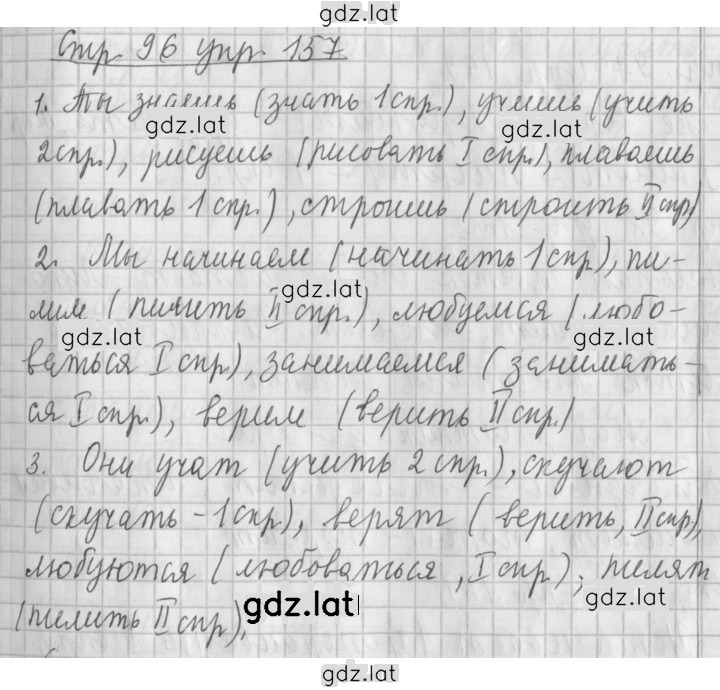 gdz.lat
Стр. 96 упр. 157
1. Ты знаешь (знать 1 спр.), учишь (учить
gdz.lat gdz.lat
2 спр.), рисуешь (рисовать I спр.), плаваешь
(плавать 1 спр.), строишь (строить II спр)
2. Мы начинаем (начинать 1 спр), пи-
gdz.lat
лим (пилить II спр.), любуемся (любо-
gdz.lat gdz.lat
ваться I спр.), занимаемся (занимать-
ся I спр.), верим (верить II спр.)
3. Они учат (учить 2 спр.), скучают
(скучать - 1 спр.), верят (верить, II спр),
любуются (любоваться, I спр.), пилят
gdz.lat gdz.lat
(пилить II спр.).
gdz.lat